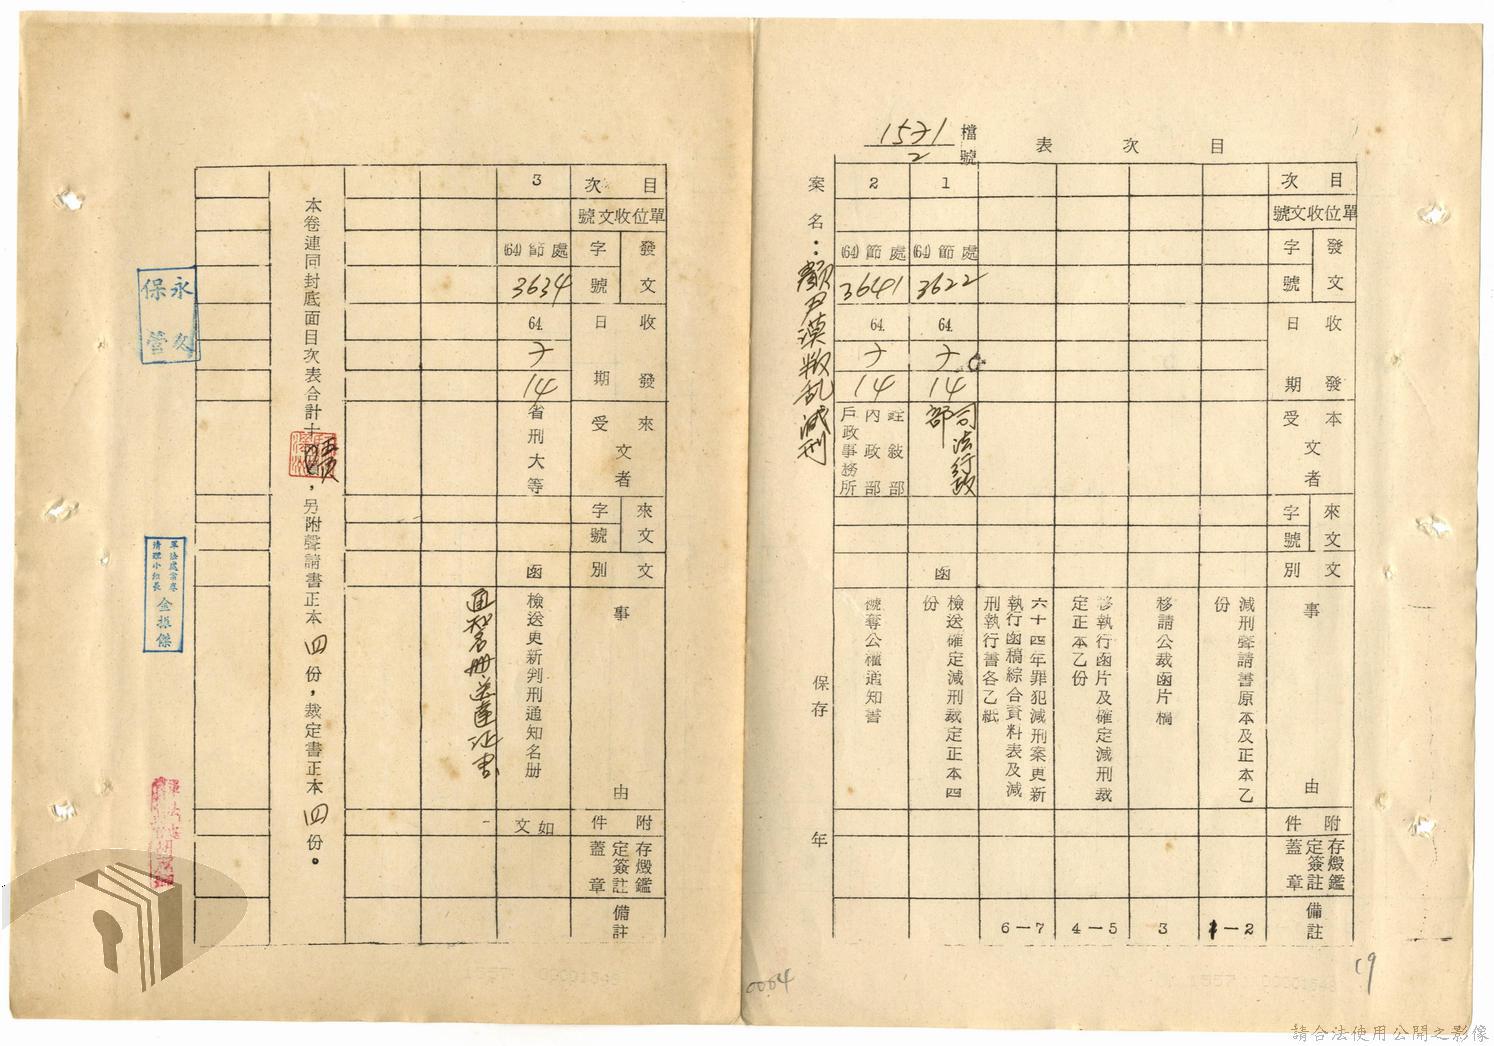 目次表
檔號 1571/2
目次
單位收文號
發文字號
收發日期
本文受者
來文字號
文別
事由
附件
存燬鑑定簽註蓋章
備註
減刑聲請書原本及正本乙份
1-2
移請公裁函片稿
3
移執行函片及確定減刑裁定正本乙份
4-5
六十四年罪犯減刑案更新執行函稿綜合資料表及減刑執行書各乙紙
6-7
1
(64)節處
3622
64
7
14
司法行政部
函
檢送確定減刑裁定正本四份
2
(64)節處
3641
64
7
14
銓敘部
內政部
戶政事務所
褫奪公權通知書
案名：顏尹漠叛乱減刑
保存
年
19
目次
單位收文號
發文字號
收發日期
來文受者
來文字號
文別
事由
附件
存燬鑑定簽註蓋章
備註
3
(64)節處
3634
64
7
14
省刑大等
函
檢送更新判刑通知名册
如文
通知名册送達証書
本卷連同封底面目次表合計十頁，另附聲請書正本四份，裁定書正本四份。
永久保管
軍法處案卷清理小組長
金振傑
0064
請合法使用公開之影像